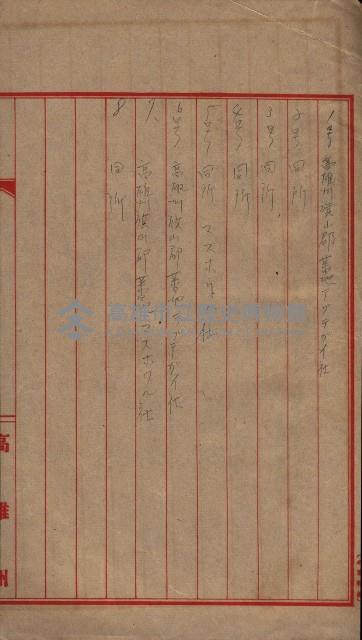 1号 高雄州旗山郡蕃地アクテガイ社
2号 同所
3号 同所
4号 同所
5号 同所 マスホワル社
6号 高雄州旗山郡蕃地アクテガイ社
7、 高雄州旗山郡蕃 マスホワル社
8 同所
高雄州
高雄市立歷史博物館